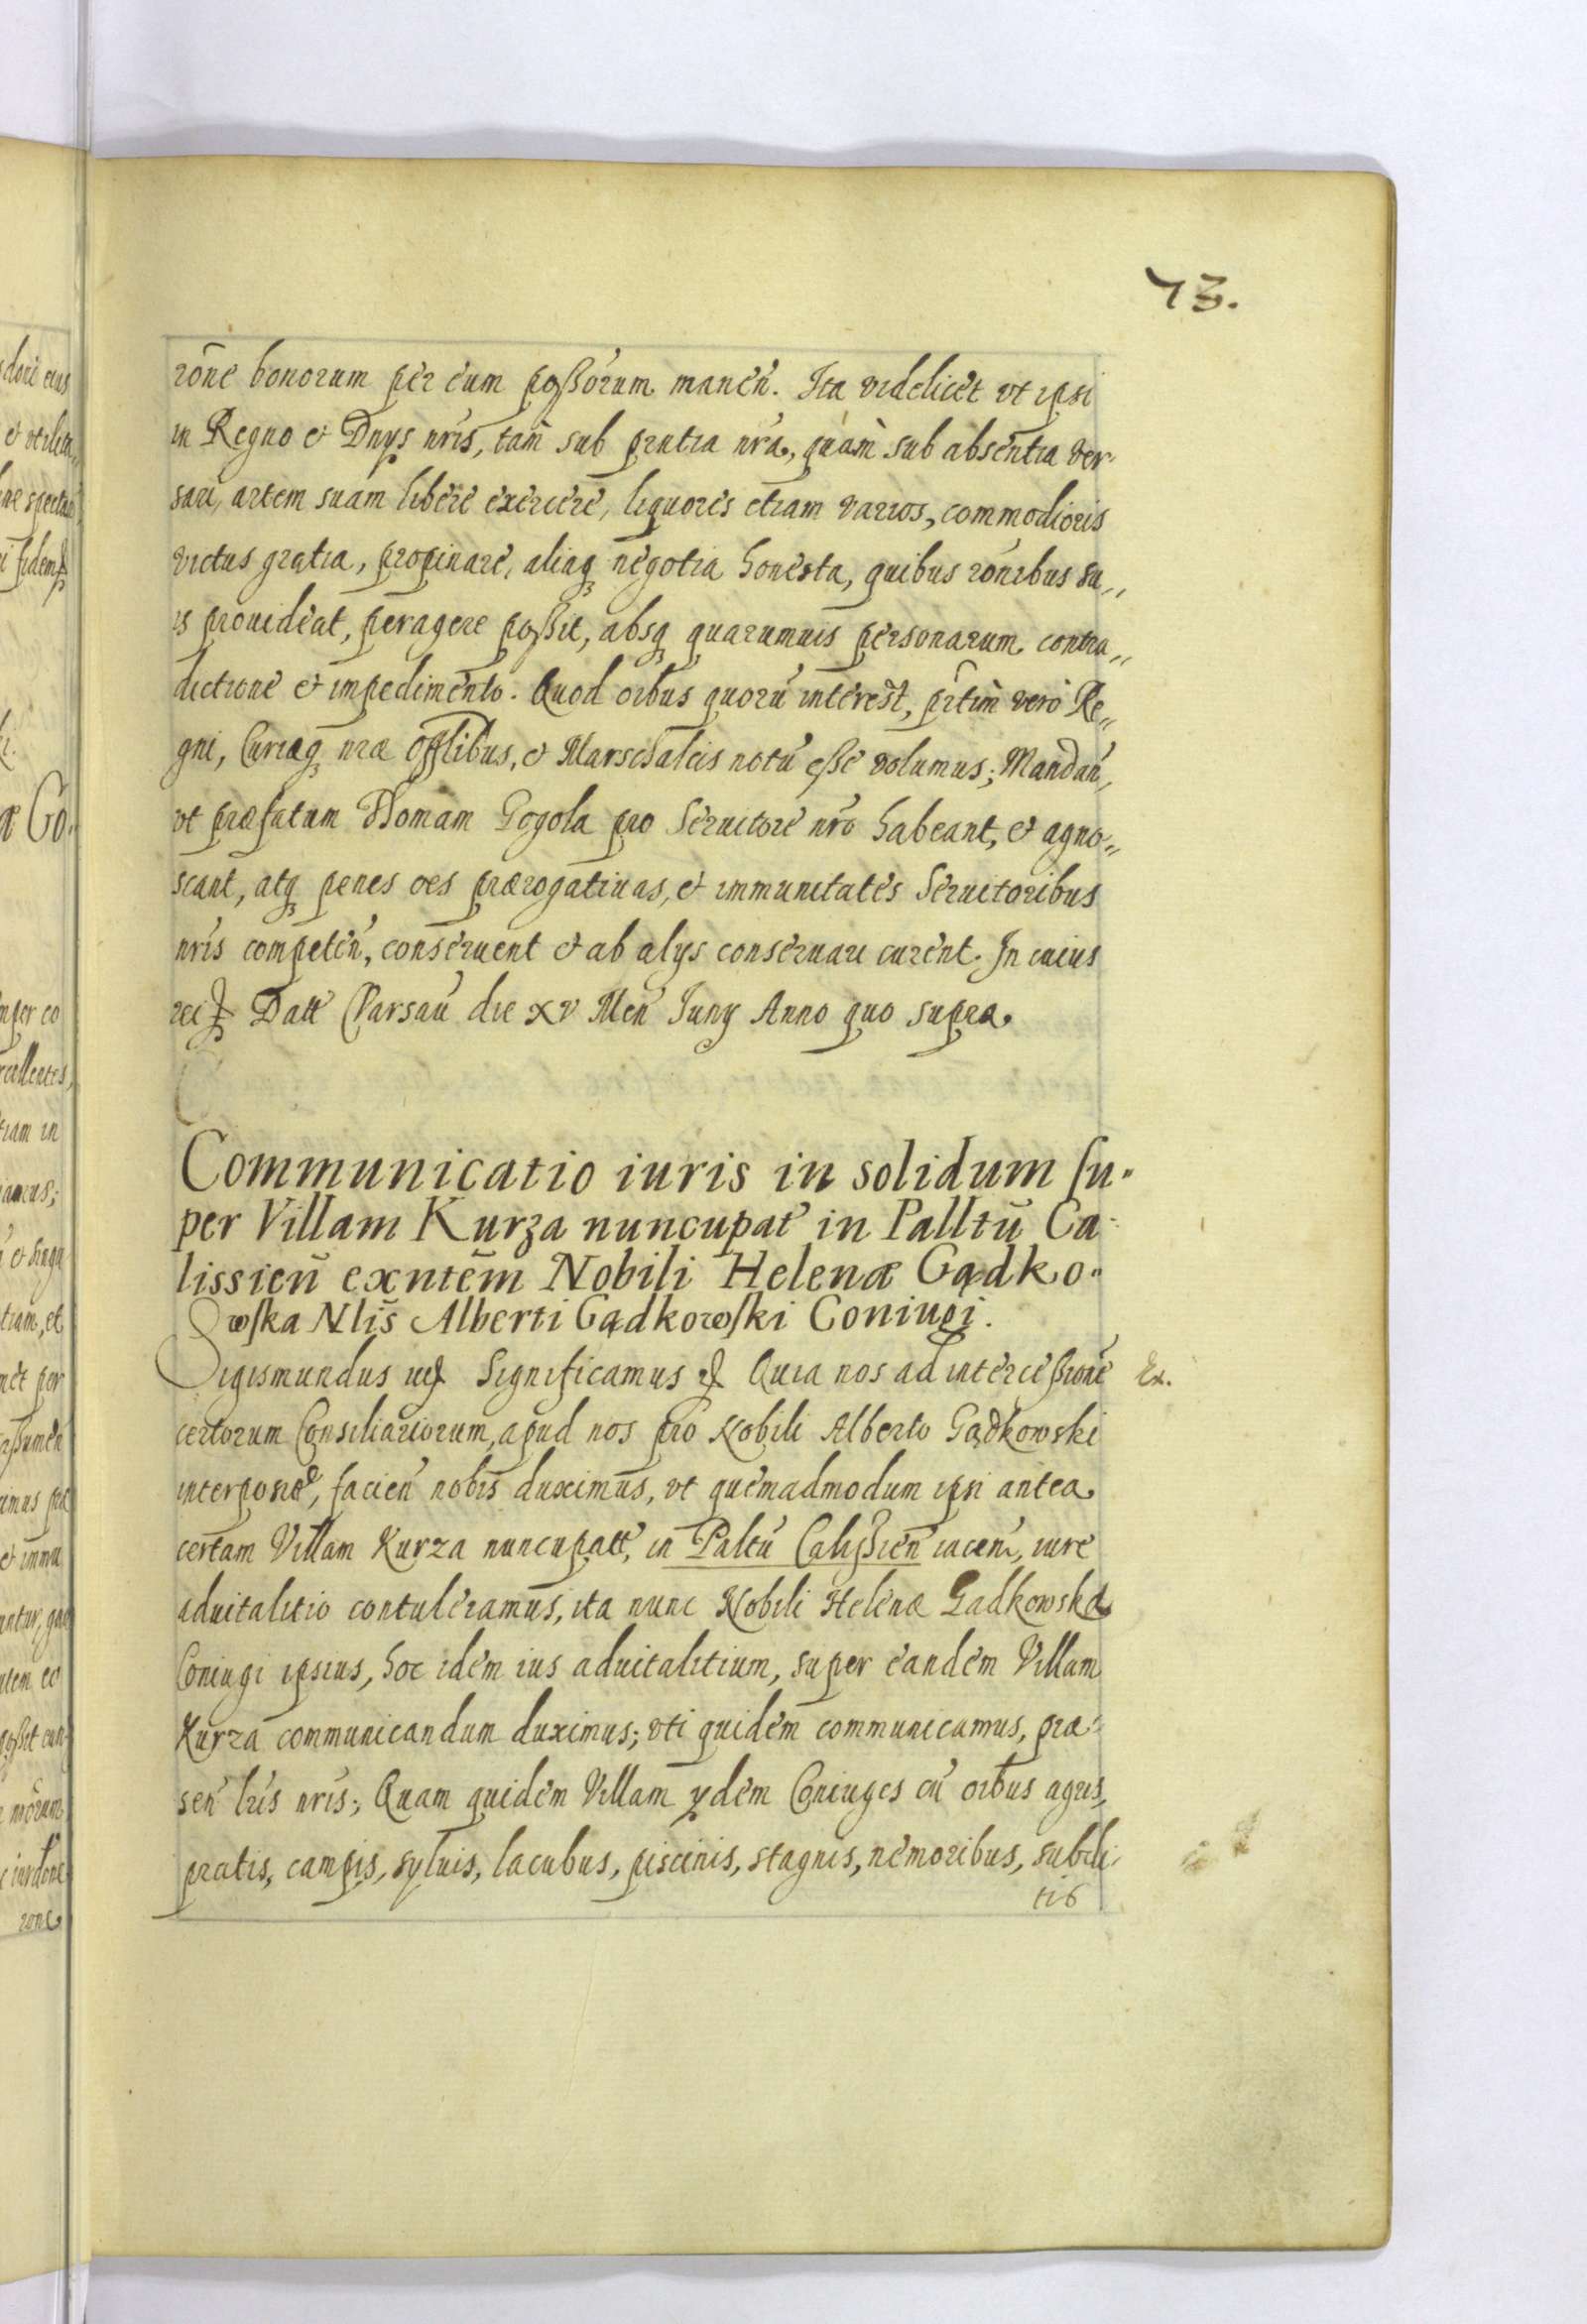 73.
rone bonorum per eum possorum manen. Ita videlicet vt ipsi
in Regno & Dnys nris, tam sub pntia nra, quam sub absentia ver-
sari, artem suam libere exercere, liquores etiam varios, commodioris
victus gratia, propinare, aliaq negotia honesta, quibus ronibus su„
is prouideat, peragere possit, absq quarumuis personarum contra„
dictione & impedimento. Quod oibus quorū interest, prtim vero Re„
gni, Curiaeq nrae Offlibus, & Marschalcis notū esse volumus; Mandan,
vt praefatum Thomam Gogola pro Seruitore nro habeant, & agno„
scant, atq penes oes praerogatiuas, & immunitates Seruitoribus
nris competen, conseruent & ab alys conseruari curent. In cuius
rei Datt Varsau die xv Men Juny Anno quo supra.
Communicatio iuris in solidum su-
per Villam Kurza nuncupat in Palltū Ca-
lissien exntem Nobili Helenae Gądko-
wska Nlis Alberti Gądkowski Coniugi.
Sigismundus Significamus Quia nos ad intercessione
Ex.
certorum Consiliariorum, apud nos pro Nobili Alberto Gądkowski
facien nobis duximus, vt quemadmodum ipsi antea
certam Villam Kurza nuncupatt, in Paltū Calissien iacen, iure
aduitalitio contuleramus, ita nunc Nobili Helenae Gadkowska
Coniugi ipsius, hoc idem ius aduitalitium, super eandem Villam
Kurza communicandum duximus; vti quidem communicamus, prae-
sen lris nris; Quam quidem Villam ydem Coniuges cū oibus agris,
pratis, campis, syluis, lacubus, piscinis, stagnis, nemoribus, subdi-
tis